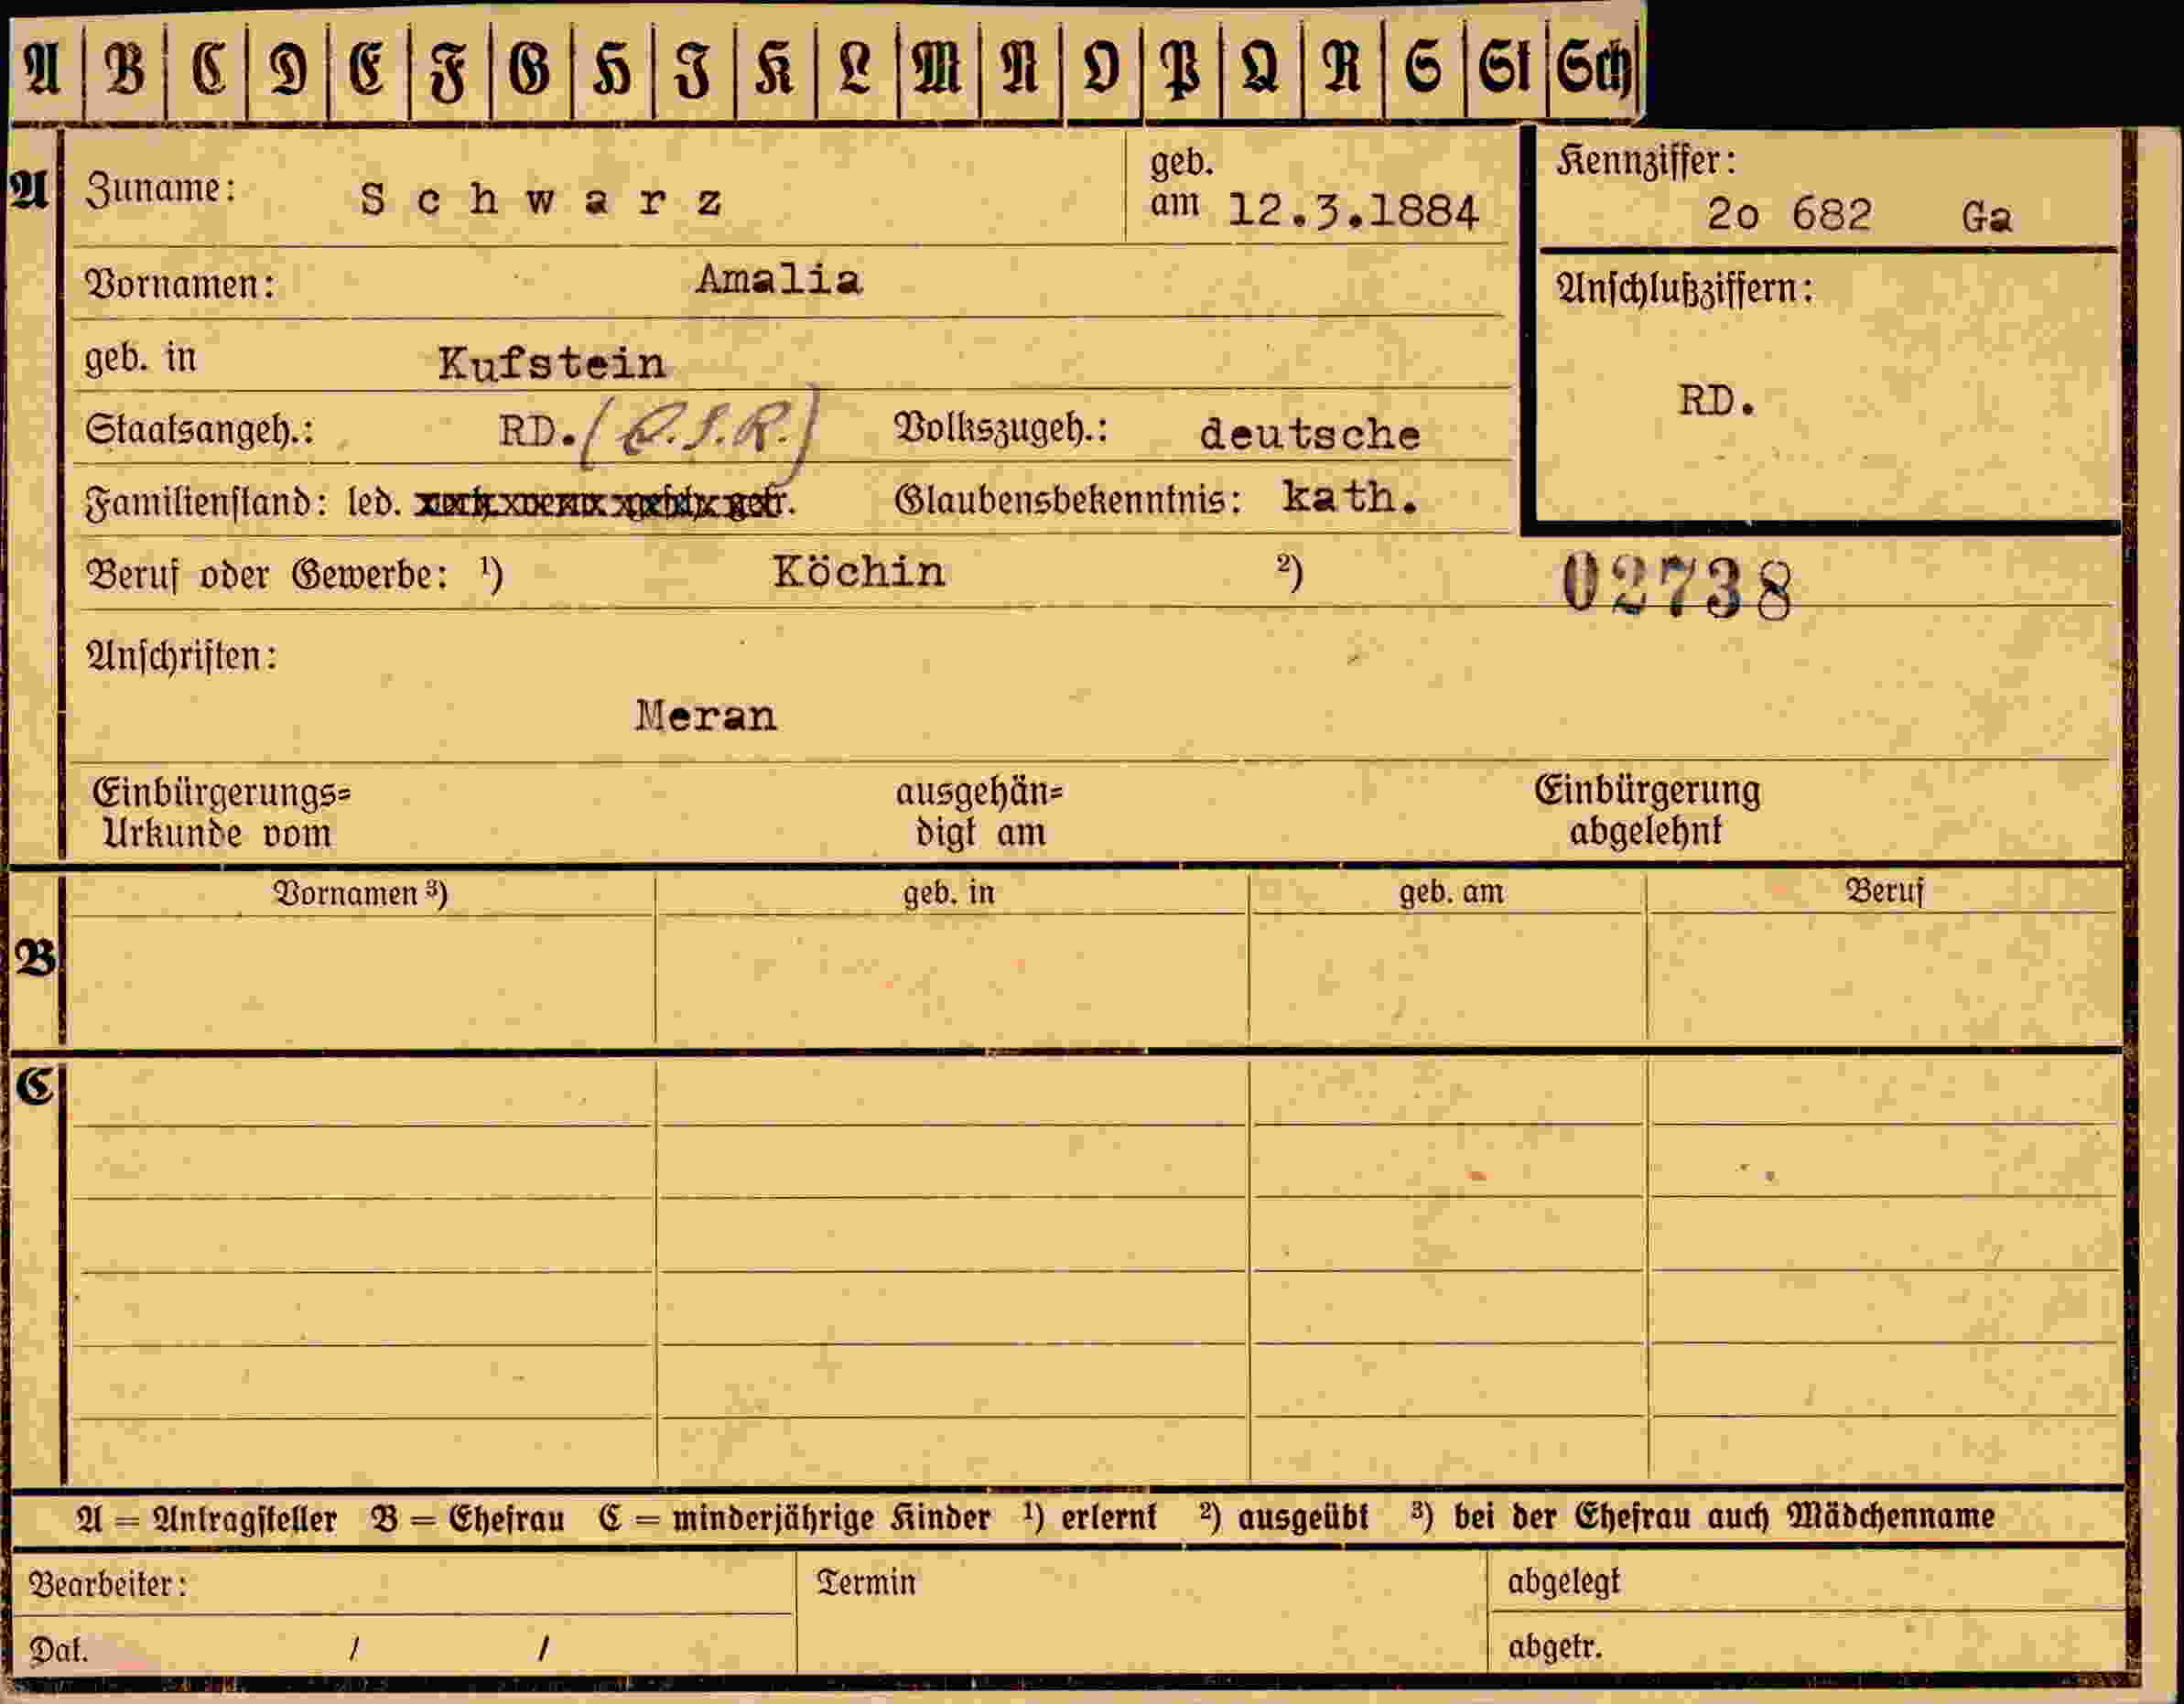 A B C D E F G H I K L M N O P Q R S St Sch
A Zuname: Schwarz geb. am 12.3.1884 Kennziffer: 2o 682 Ga
Vornamen: Amalia Anschlußziffern:
geb. in Kufstein
RD.
Staatsangeh.: RD. Volkszugeh.: deutsche
Familienstand: led. Glaubensbekenntnis: kath.
Beruf oder Gewerbe: ¹) Köchin ²) 02738
Anschriften:
Meran
Einbürgerungs= ausgehän= Einbürgerung
Urkunde vom digt am abgelehnt
Vornamen ³) geb. in geb. am Beruf
B
C
A = Antragsteller B = Ehefrau C = minderjährige Kinder ¹) erlernt ²) ausgeübt ³) bei der Ehefrau auch Mädchenname
Bearbeiter: Termin abgelegt
Dat. / / abgetr.